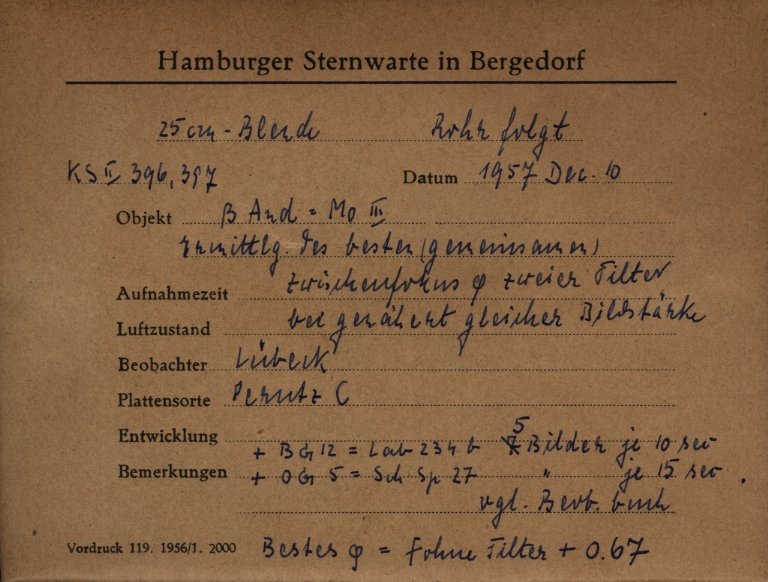 Hamburger Sternwarte in Bergedorf
25 cm - Blende Rohr folgt
KS II 396, 397 Datum 1957 Dec. 10
Objekt β And = Mo III
Ermittlg. des besten (gemeinsamen)
Aufnahmezeit zwischenfokus φ zweier Filter
Luftzustand bei genähert gleicher Bildstärke
Beobachter Lübeck
Plattensorte Perutz C
Entwicklung
+ BG 12 = Lab 234 b 5 Bilder je 10 sec
Bemerkungen + OG 5 = Sch Sp 27 " je 15 sec
vgl. Beob. buch
Vordruck 119. 1956/1. 2000 Bestes φ = Fohne Filter + 0.67